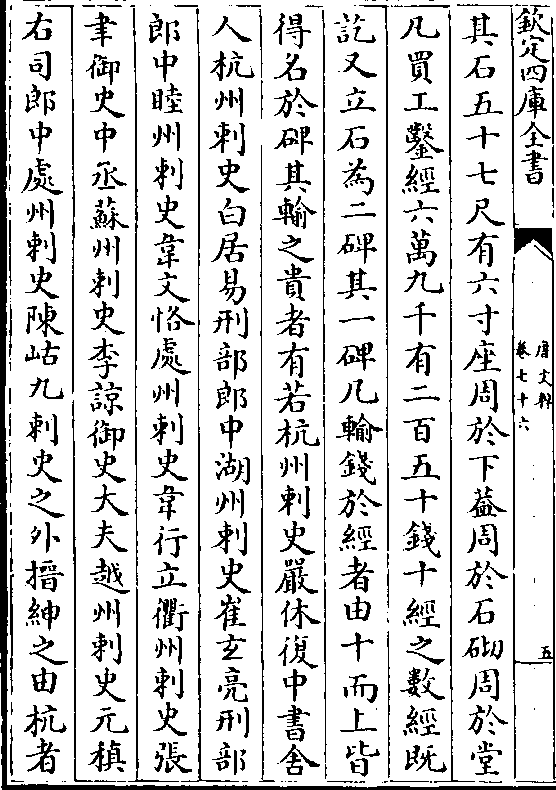 欽定四庫全書
唐文粹
卷七十六
五
其石五十七尺有六寸座周於下葢周於石砌周於堂
凡買工鑿經六萬九千有二百五十錢十經之數經既
訖又立石為二碑其一碑凡輸錢於經者由十而上皆
得名於碑其輸之貴者有若杭州刺史嚴休復中書舍
人杭州刺史白居易刑部郎中湖州刺史崔玄亮刑部
郎中睦州刺史韋文恪處州刺史韋行立衢州刺史張
聿御史中丞蘇州刺史李諒御史大夫越州刺史元稹
右司郎中處州刺史陳岵九刺史之外搢紳之由杭者